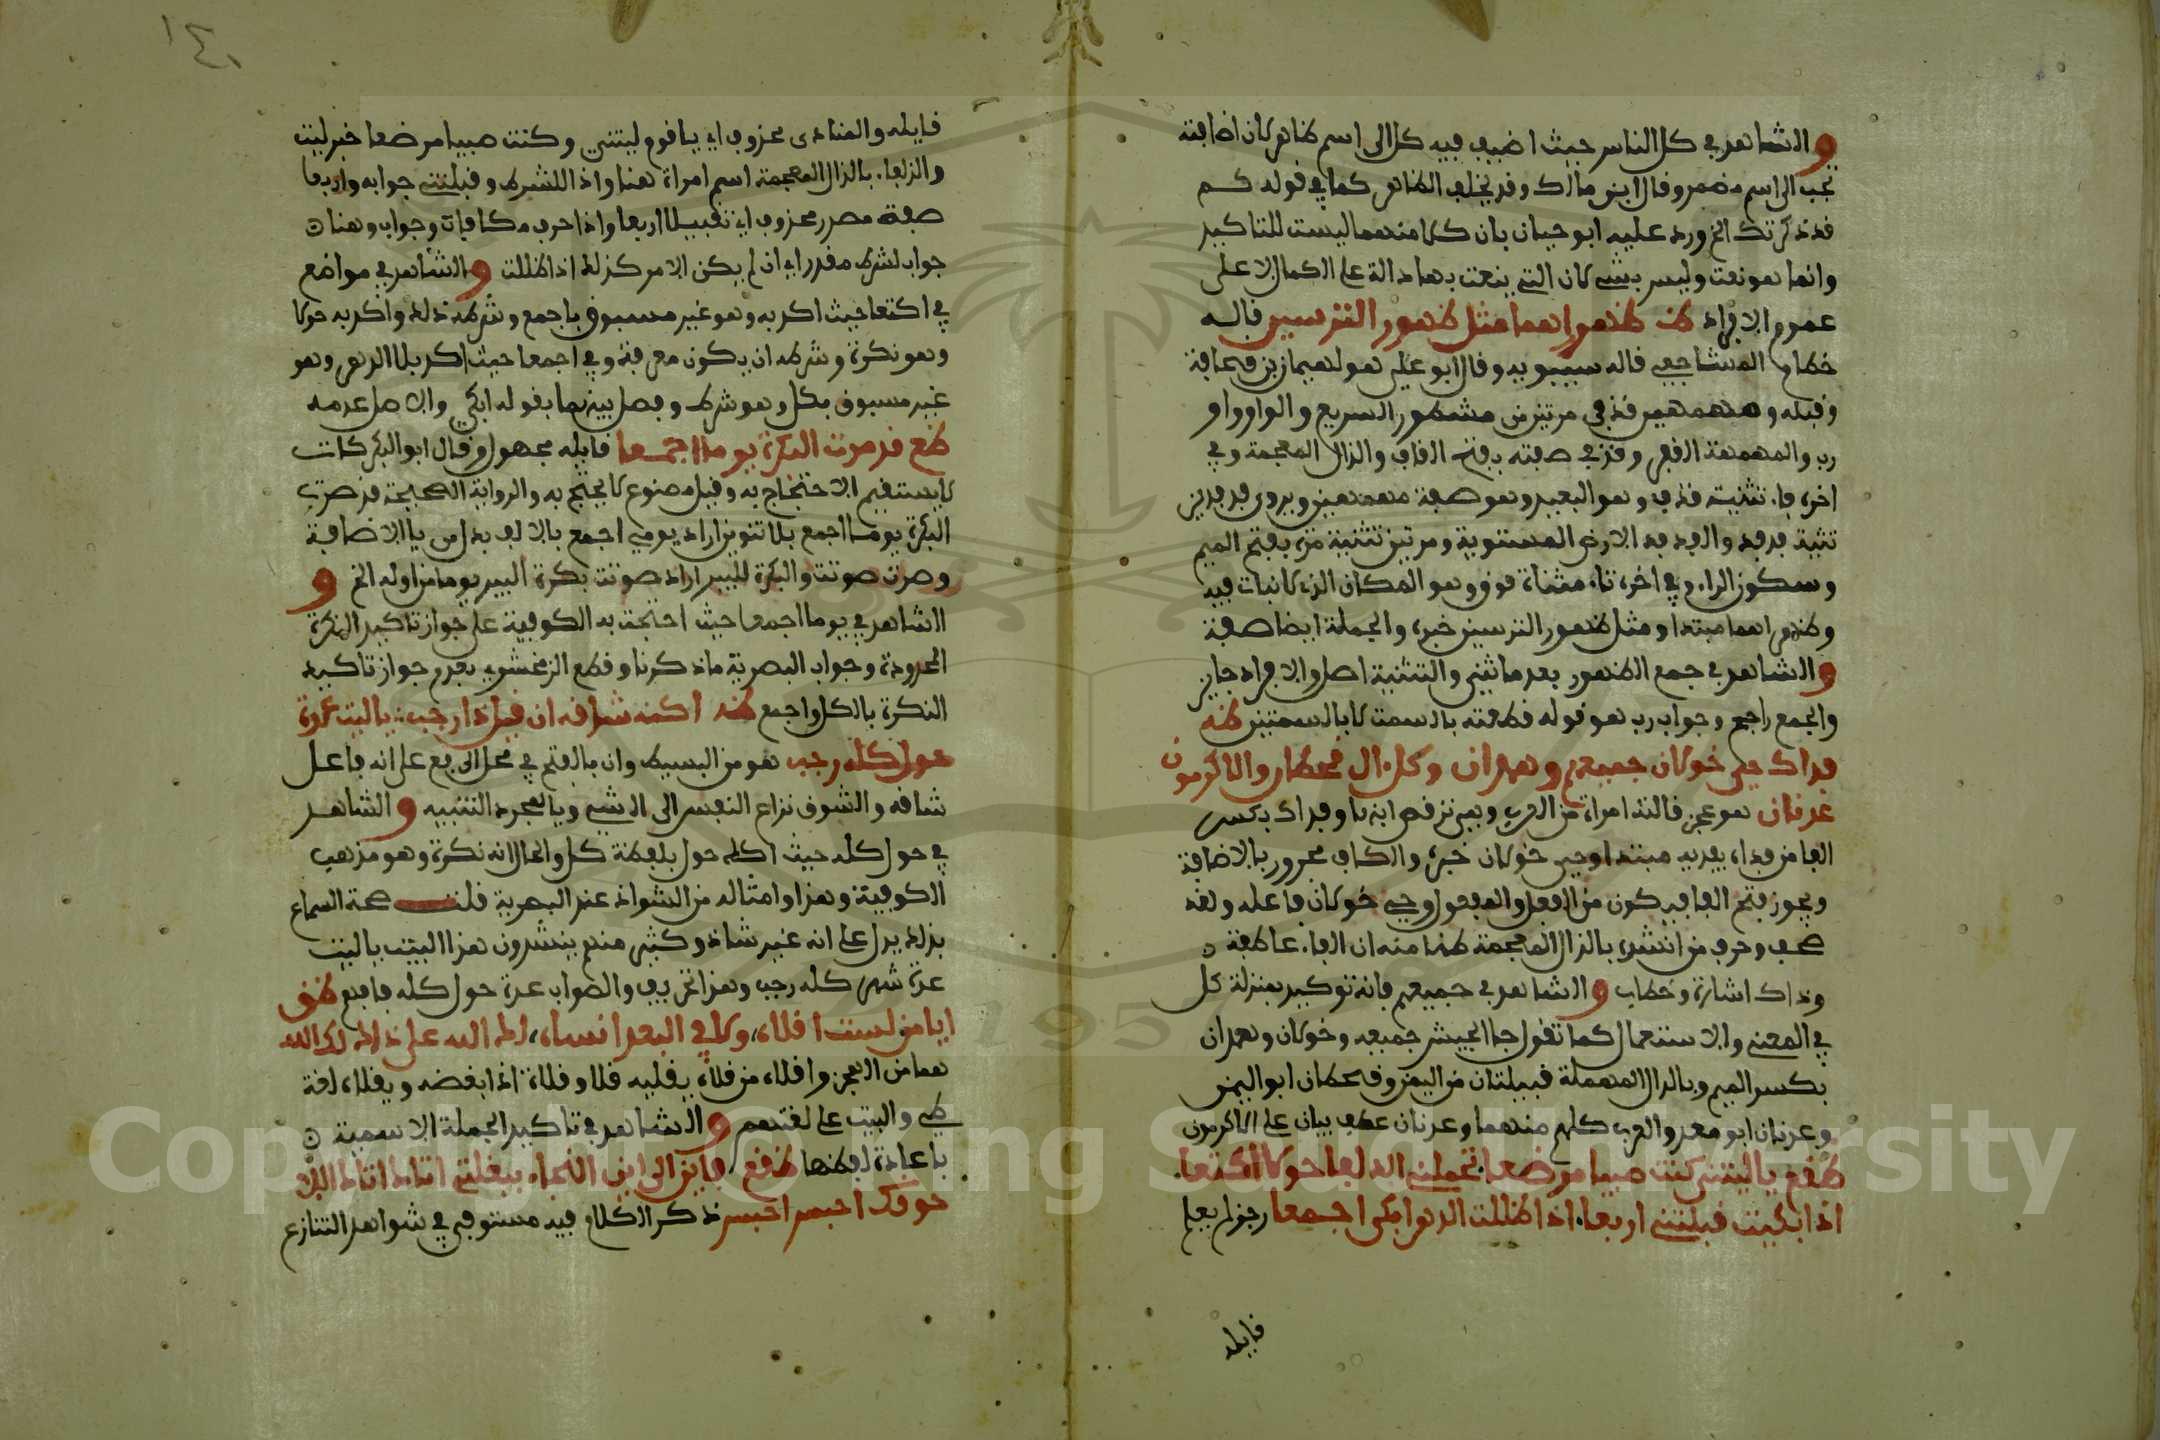 والشاهد في كل الناس حيث اضيف فيه كل الى اسم ظاهر لان اضافته
يجب الى اسم مضمر وقال ابن مالك وقد يخلفه الظاهر كما في قوله كم
قد ذكرتك الخ ورد عليه ابو حيان بان كلا منهما ليست للتاكيد
وانما هو نعت وليس بشي لان التي ينعت بها دالة على الكمال لا على
عموم الافراد ظه ظهراهما مثل ظهور الترسين قاله
خطام المجاشعي قاله سيبويه وقال ابو علي هو لهيمان بن قحافة
وقبله ومهمهين قذفين مرتين من مشطور السريع والواو واو
رب والمهمه القفر وقذفين صفته بفتح القاف والذال المعجمة وفي
اخره فا. تثنية قذف وهو البعيد وهو صفة مهمهين ويروى فدفدين
تثنية فدفد والفدفد الارض المستوية ومرتين تثنية مرت بفتح الميم
وسكون الرا. وفي اخره تا. مثناة فوق وهو المكان الذي لا نبات فيه
وظهراهما مبتدا ومثل ظهور الترسين خبره والجملة ايضا صفة
والشاهد في جمع الظهور بعد ما ثني والتثنية اصل والافراد جايز
والجمع راجح وجواب رب هو قوله قطعته بالسمت لا بالسمتين ظه
فداك حي خولان جميعهم وهمدان وكل ال قحطان والاكرمون
عدنان هو عجز قالته امراة من العرب وهي ترقص ابنها وفداك بكسر
الفا من فداه يفديه مبتدا وحي خولان خبره والكاف مجرور بالاضافة
ويجوز فتح الفا فيكون من الفعل والمفعول وحي خولان فاعله ولقد
صحف وحرف من انشده بالذال المعجمة ظنا منه ان الفا. عاطفة
وذاك اشارة وخطاب والشاهد في جميعهم فانه توكيد بمنزلة كل
في المعنى والاستعمال كما تقول جا الجيش جميعه وخولان وهمدان
بكسر الميم وبالدال المهملة قبيلتان من اليمن وقحطان ابو اليمن
وعدنان ابو معد والعرب كلهم منهما وعدنان عطف بيان على الاكرمون
ظقع يا ليتني كنت صبيا مرضعا. تحملني الدلفا حولا اكتعا.
اذا بكيت قبلتني اربعا. اذا ظللت الدهر ابكي اجمعا رجز لم يعلم
قايله
قايله والمنادى محذوف اي يا قوم ليتني وكنت صبيا مرضعا خبر ليت
والذلفا. بالذال المعجمة اسم امراة هنا واذا للشرط وقبلتني جوابه واربعا
صفة مصدر محذوف اي تقبيلا اربعا واذا حرف مكافات وجواب وهنا
جواب لشرط مقدر اي ان لم يكن الامر كذلك اذا ظللت والشاهد في مواضع
في اكتعا حيث اكد به وهو غير مسبوق باجمع وشرطه ذلك واكد به حولا
وهو نكرة وشرطه ان يكون معرفة وفي اجمعا حيث اكد بلا الدهر وهو
غير مسبوق بكل وهو شرط وفصل بينهما بقوله ابكي والاصل عدمه
ظع قد صرت البكرة يوما اجمعا قايله مجهول وقال ابو البركات
لا يستقيم الاحتجاج به وقيل مصنوع لا يحتج به والرواية الصحيحة قد صرت
البكرة يوما اجمع بلا تنوين اراد يومي اجمع بالالف بدل من يا الاضافة
وصرت صوتت والبكرة للبير اراد صوتت بكرة البير يوما من اوله الخ و
الشاهد في يوما اجمعا حيث احتجت به الكوفية على جواز تاكيد النكرة
المحدودة وجواب البصرية ما ذكرنا وقطع الزمخشري بعدم جواز تاكيد
النكرة بالكل واجمع ظه لكنه شاقه ان قيل ذا رجب؛ يا ليت عدة
حول كله رجب هو من البسيط وان بالفتح في محل الرفع على انه فاعل
شاقه والشوق نزاع النفس الى الشي ويا لمجرد التنبيه والشاهد
في حول كله حيث اكد حول بلفظة كل والحال انه نكرة وهو مذهب
الكوفية وهذا وامثاله من الشواذ عند البصرية قلت صحة السماع
بذلك يدل على انه غير شاذ وكثير منهم ينشدون هذا البيت يا ليت
عدة شهر كله رجب وهذا تحريف والصواب عدة حول كله فافهم ظقه
ايا من لست اقلاه، ولا في البعد انساه، لك الله على ذاك لك الله
هما من الهزج واقلاه من قلاه يقليه قلا وقلاء اذا ابغضه ويقلاه لغة
طي والبيت على لغتهم والشاهد في تاكيد الجملة الاسمية
باعادة لفظها ظقع فاين الى اين النجاه ببغلتي اتاك اتاك اللا
حقوك احبس احبس ذكر الكلام فيه مستوفى في شواهد التنازع
Copyright © King Saud University
1957